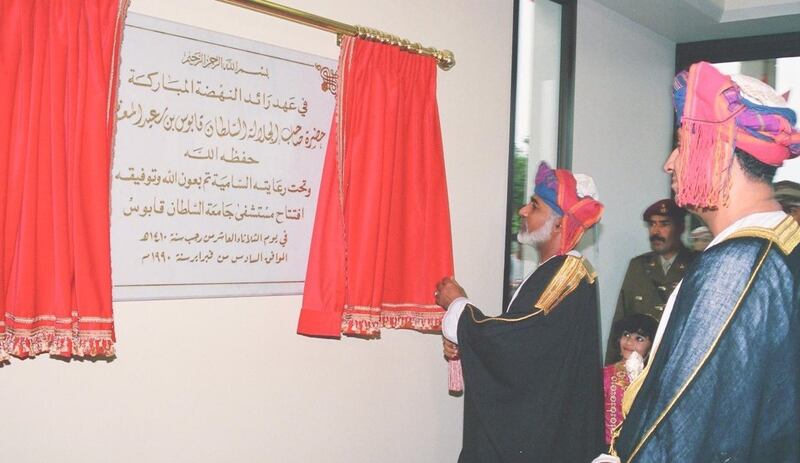 بسم الله الرحمن الرحيم
في عهد رائد النهضة المباركة
حضرة صاحب الجلالة السلطان قابوس بن سعيد المعظ
حفظه الله
وتحت رعايته السامية تم بعون الله وتوفيقه
افتتاح مستشفى جامعة السلطان قابوس
في يوم الثلاثاء العاشر من رجب سنة ١٤١٠هـ
الموافق السادس من فبراير سنة ١٩٩٠م